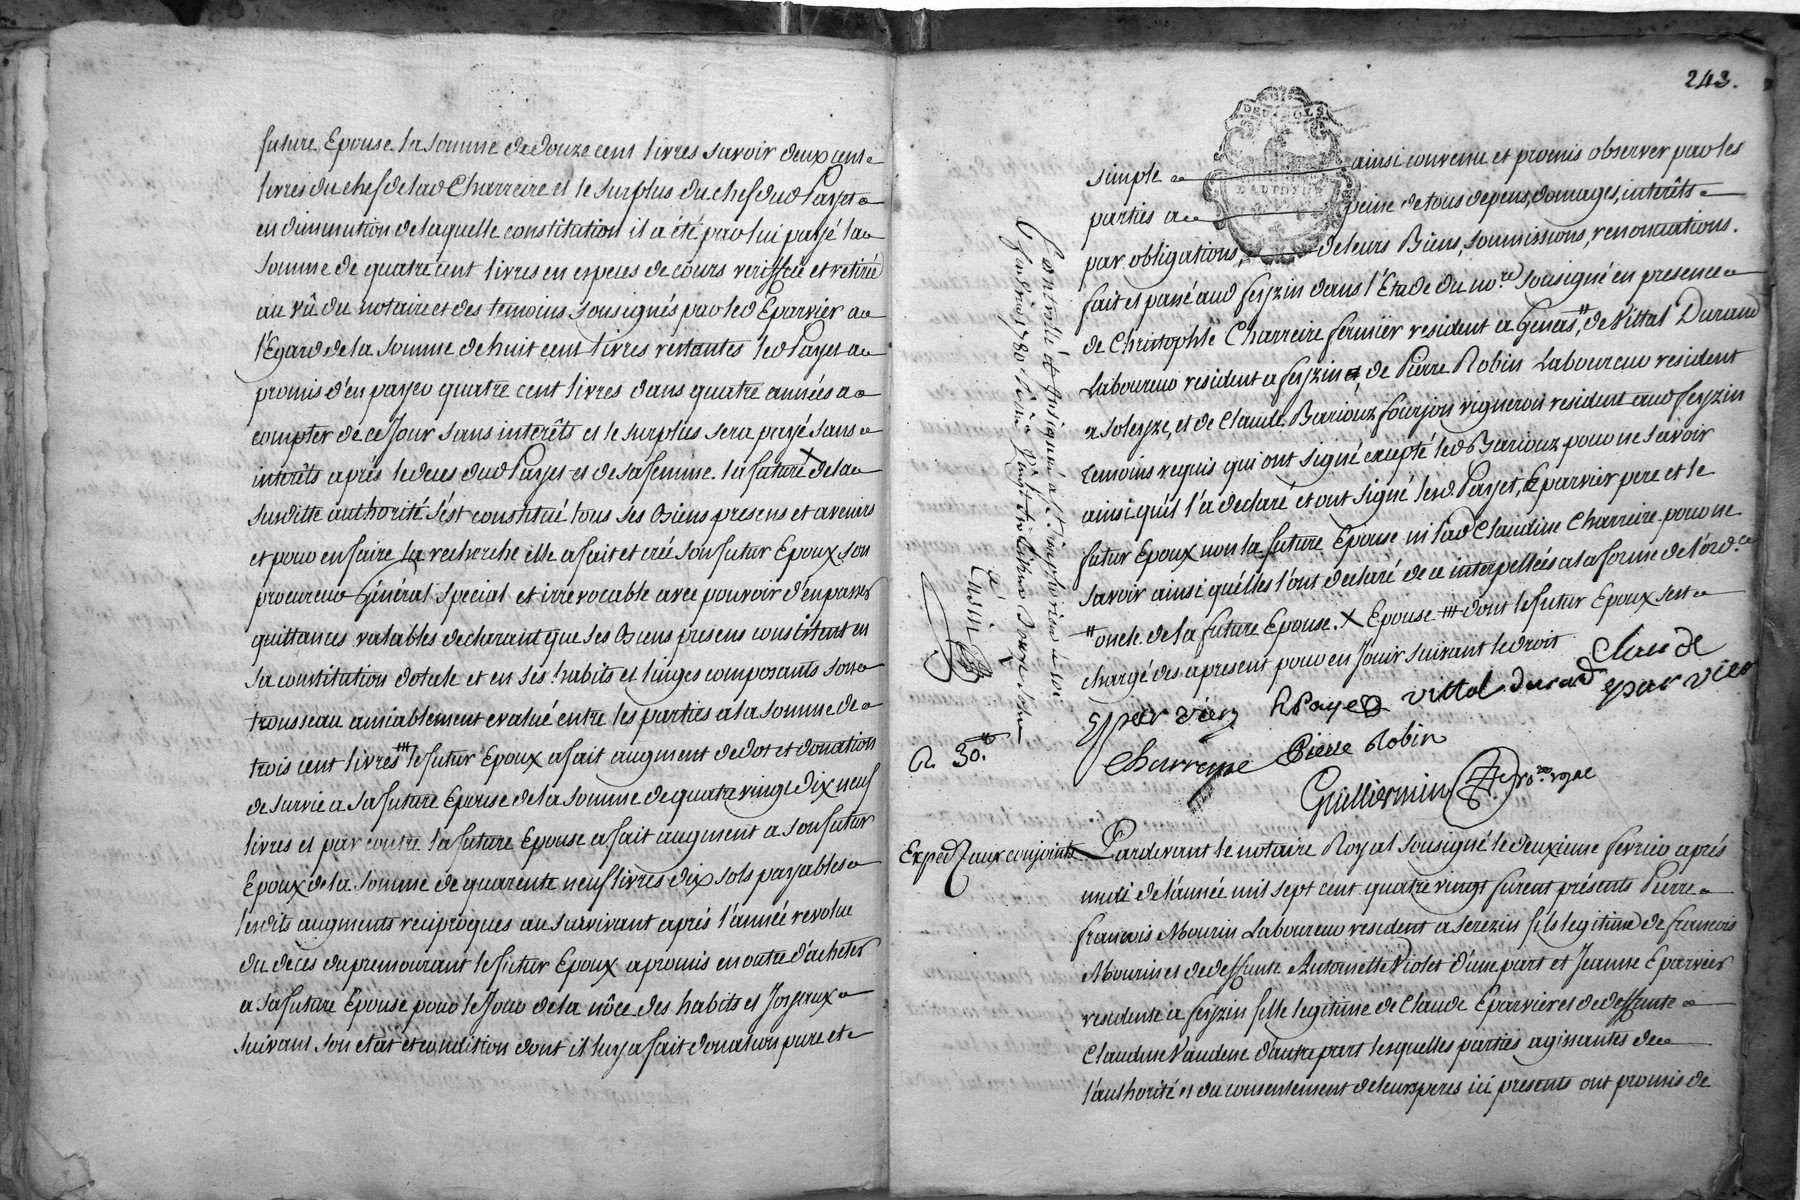 future Epouse la somme de douze cent livres savoir deux cent
livres du chef de lad Charreire et le surplus du chef dud Payet
en diminution de laquelle constitution il a été par lui payé la
somme de quatre cent livres en especes de cours veriffiée et retirée
au vû du notaire et des temoins sousignés par led Eparvier a
l'Egard de la somme de huit cent livres restantes led Payet a
promis d'en payer quatre cent livres dans quatre années a
compter de ce Jour sans interêts et le surplus sera payé sans
interêts aprés le deces dud Payet et de sa femme. la future X de la
susditte authorité s'est constitué tous ses Biens presens et avenirs
et pour en faire la recherche elle a fait et créé son futur Epoux son
procureur Général special et irrevocable avec pouvoir d'en passer
quittances valables declarant que ses Biens presens consistent en
sa constitution dotale et en ses habits et linges composants son
trousseau amiablement evalué entre les parties a la somme de
trois cent livres ⧻ le futur Epoux a fait augment de dot et donation
de survie a sa future Epouse de la somme de quatre vingt dix neuf
livres et par contre la future Epouse a fait augment a son futur
Epoux de la somme de quarente neuf livres dix sols payables
lesdits augments reciproques au survivant aprés l'année revolue
du déces du premourant le futur Epoux a promis en outre d'acheter
a sa future Epouse pour le Jour de la nôce des habits et Joyaux
suivant son etat et condition dont il luy a fait donation pure et
243.
DEUX SOLS
simple ainsi convenu et promis observer par les
parties a peine de tous depens, domages, interêts
par obligations, de leurs Biens, soumissions, renonciations.
fait et passé aud feyzin dans l'Etude du no.re sousigné en presence
de Christophle Charreire fermier resident a Genas, # de Vittal Durand
Laboureur resident a feyzin, de Pierre Robin Laboureur resident
a Soleyze, et de Claude Bariouz fourjon vigneron resident aud feyzin
temoins requis qui ont signé excepté led Bariouz pour ne savoir
ainsi qu'il l'a declaré et ont signé lesd. Payet, Eparvier pere et le
futur Epoux non la future Epouse ni lad Claudine Charreire pour ne
savoir ainsi quelles l'ont declaré de ce interpellées a la forme de l'ord.ce
# oncle de la future Epouse. X Epouse ⧻ dont le futur Epoux sest
chargé des apresent pour en Jouir suivant le droit
Claude
Eparvier
Eparvier Payet Vittal durand
Charreire Pierre Robin
Guillermin no.re royal
Controllé et Insinué a St. Simphorien le six
fevrier 1780
Cusin
R. 30.#
Exped aux conjoints
Pardevant le notaire Royal sousigné le deuxieme fevrier aprés
midi de l'année mil sept cent quatre vingt furent présents Pierre
francois Mourin Laboureur resident a Serezin fils legitime de francois
Mourin et de deffunte Antoinette Violet d'une part et Jeanne Eparvier
residente a feyzin fille legitime de Claude Eparvier et de deffunte
Claudine Vaudene d'autre part lesquelles parties agissantes de
l'authorité et du consentement de leurs peres ici presents ont promis de